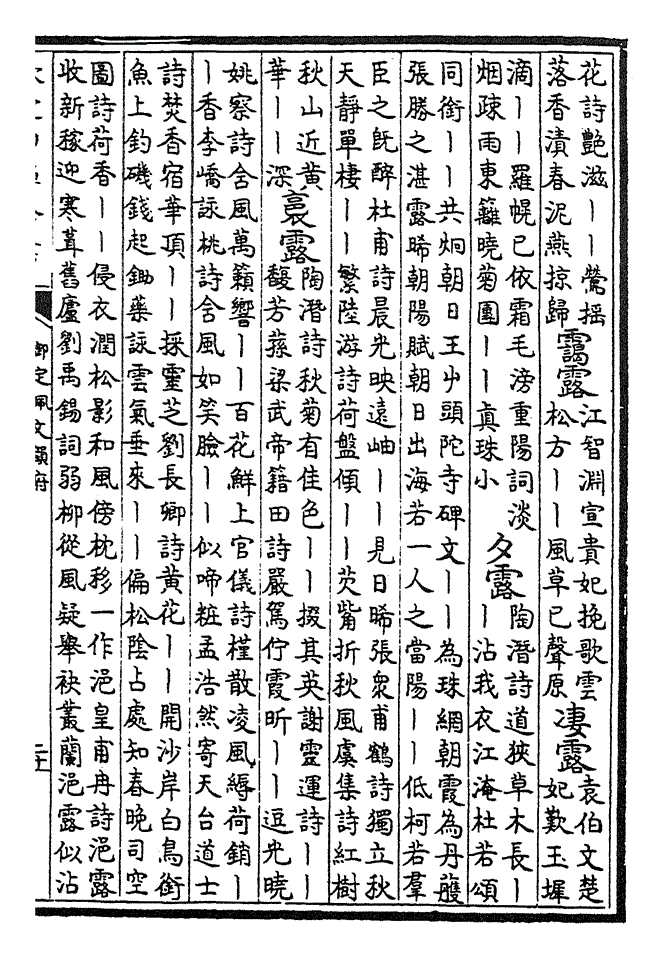 花詩艷滋丨丨鶯摇
落香漬春泥燕掠歸
靄露
江智淵宣貴妃挽歌雲
松方丨丨風草已聲原
凄露
袁伯文楚
妃歎玉墀
滴丨丨羅幌已依霜毛滂重陽詞淡
烟疎雨東籬曉菊團丨丨真珠小
夕露
陶潛詩道狹草木長丨
丨沾我衣江淹杜若頌
同銜丨丨共炯朝日王屮頭陀寺碑文丨丨為珠網朝霞為丹雘
張勝之湛露晞朝陽賦朝日出海若一人之當陽丨丨低柯若羣
臣之既醉杜甫詩晨光映遠岫丨丨見日晞張衆甫鶴詩獨立秋
天靜單棲丨丨繁陸游詩荷盤傾丨丨芡觜折秋風虞集詩紅樹
秋山近黄
華丨丨深
裛露
陶潛詩秋菊有佳色丨丨掇其英謝靈運詩丨丨
馥芳蓀梁武帝籍田詩嚴駕佇霞昕丨丨逗光曉
姚察詩含風萬籟響丨丨百花鮮上官儀詩槿散凌風縟荷銷丨
丨香李嶠詠桃詩含風如笑臉丨丨似啼粧孟浩然寄天台道士
詩焚香宿華頂丨丨採靈芝劉長卿詩黄花丨丨開沙岸白鳥銜
魚上釣磯錢起鋤藥詠雲氣垂來丨丨偏松陰占處知春晚司空
圖詩荷香丨丨侵衣潤松影和風傍枕移一作浥皇甫冉詩浥露
收新稼迎寒葺舊廬劉禹錫詞弱柳從風疑舉袂叢蘭浥露似沾
御定佩文韻府